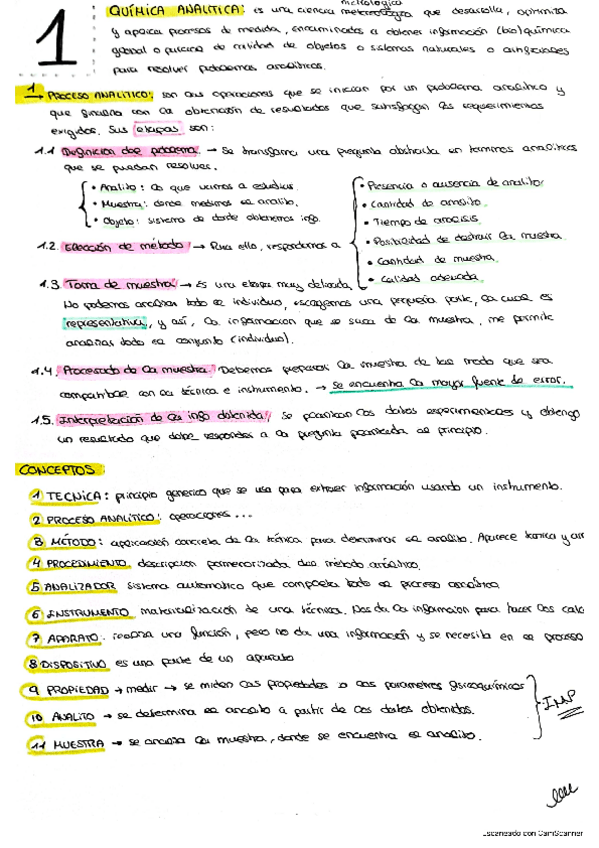 metrológica
1
QUÍMICA ANALÍTICA: es una ciencia metereológica que desarrolla, optimiza
y aplica procesos de medida, encaminados a obtener información (bio)química
global o parcial de calidad de objetos o sistemas naturales o artificiales
para resolver problemas analíticos.
1 → PROCESO ANALÍTICO: son las operaciones que se inician por un problema analítico y
que finaliza con la obtención de resultados que satisfagan los requerimientos
exigidos. Sus etapas son:
1.1 Definición del problema → Se transforma una pregunta abstracta en términos analíticos
que se puedan resolver.
• Analito: lo que vamos a estudiar.
• Muestra: donde medimos el analito.
• Objeto: sistema de donde obtenemos info.
1.2. Elección de método → Para ello, respondemos a
• Presencia o ausencia de analito
• Cantidad de analito
• Tiempo de análisis
• Posibilidad de destruir la muestra
• Cantidad de muestra
• Calidad adecuada
1.3 Toma de muestra → Es una etapa muy delicada
No podemos analizar todo el individuo, escogemos una pequeña parte, la cual es
representativa, y así, la información que se saca de la muestra, me permite
analizar todo el conjunto (individuo).
1.4. Procesado de la muestra. Debemos preparar la muestra de tal modo que sea
compatible con la técnica e instrumento. → Se encuentra la mayor fuente de error.
1.5. Interpretación de la info obtenida, se plantean los datos experimentales y obtengo
un resultado que debe responder a la pregunta planteada al principio.
CONCEPTOS:
1 TECNICA: principio generico que se usa para extraer información usando un instrumento.
2 PROCESO ANALÍTICO: operaciones ...
3 MÉTODO: aplicación concreta de la técnica para determinar el analito. Aparece tecnica y
4 PROCEDIMIENTO descripcion pormenorizada del método analítico.
5 ANALIZADOR sistema automatico que completa todo el proceso analítico
6 INSTRUMENTO materialización de una técnica. Nos da la informacion para hacer los calc
7 APARATO: realiza una función, pero no da una información y se necesita en el proceso
8 DISPOSITIVO es una parte de un aparato
9 PROPIEDAD → medir → se miden las propiedades o los parametros fisicoquímicos
10 ANALITO → se determina el analito a partir de los datos obtenidos.
11 MUESTRA → se analiza la muestra, donde se encuentra el analito.
IMP
Escaneado con CamScanner